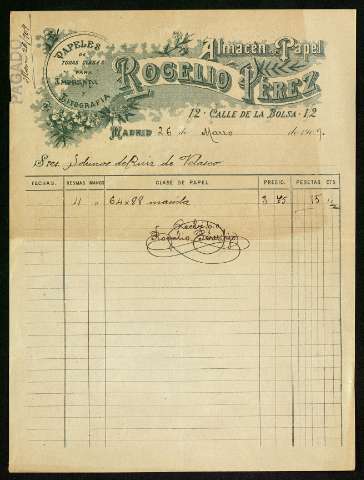 PAGADO
PAPELES
DE
TODAS CLASES
PARA
IMPRENTA
Y
LITOGRAFIA
Almacén de Papel
ROGELIO PEREZ
12 · CALLE DE LA BOLSA · 12
MADRID 26 de Marzo de 1909.
Sres. de Ruiz de Velasco
FECHAS. RESMAS MANOS CLASE DE PAPEL PRECIO. PESETAS CTS
4 " 64 x 88 3 75 15
Recibí
Rogelio